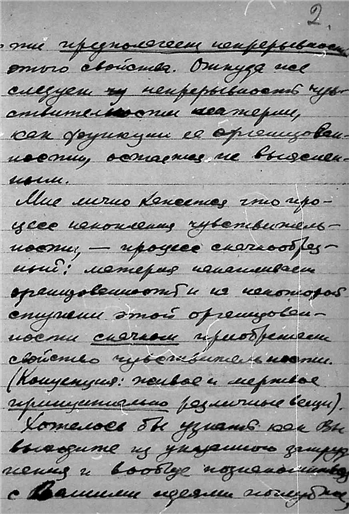 2.
эти предполагаем непрерывность
этого свойства. Откуда же
следует эта непрерывность чув-
ствительности материи,
как функции ее организован-
ности, остается не выяснен-
ным.
Мне лично кажется что про-
цесс накопления чувствитель-
ности, — процесс скачкообраз-
ный: материя накапливает
организованность и на некоторой
ступени этой организован-
ности скачком приобретает
свойство чувствительности.
(Концепция: живое и мертвое
принципиально различные вещи).
Хотелось бы узнать как Вы
выходите из указанного затруд-
нения и вообще познакомиться
с Вашими идеями поглубже,